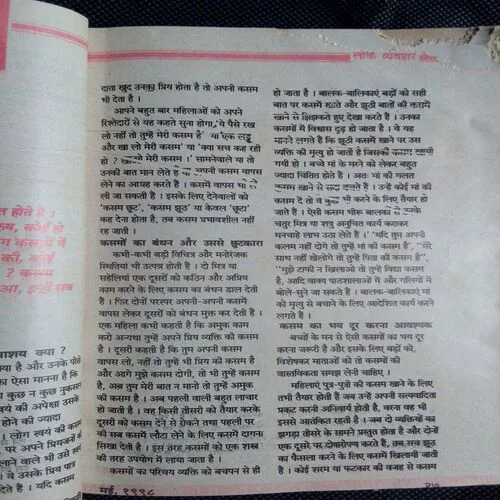 लोक व्यवहार
दाता खुद उनका प्रिय होता है तो अपनी कसम
भी देता है ।
आपने बहुत बार महिलाओं को अपने
रिश्तेदारों से यह कहते सुना होगा, 'ये पैसे रख
लो नहीं तो तुम्हें मेरी कसम है' या 'एक लड्डू
और खा लो मेरी कसम' या 'क्या सच कह रही
हो ? खाओ मेरी कसम ।' सामनेवाले या तो
उनकी बात मान लेते हैं या अपनी कसम वापस
लेने का आग्रह करते हैं । कसमें वापस भी ले
ली जा सकती हैं । इसके लिए देनेवालों को
'कसम छूट', 'कसम झूठ' या केवल 'छूटा'
कह देना होता है, तब कसम प्रभावशील नहीं
रह जाती ।
कसमों का बंधन और उससे छुटकारा
कभी-कभी बड़ी विचित्र और मनोरंजक
स्थितियां भी उत्पन्न होती हैं । दो मित्र या
सहेलियां एक दूसरे को कठिन और अप्रिय
काम करने के लिए कसम का बंधन डाल देती
हैं । फिर दोनों परस्पर अपनी-अपनी कसमें
वापस लेकर दूसरे को बंधन मुक्त कर देती हैं ।
एक महिला कभी कहती है कि अमुक काम
करो अन्यथा तुम्हें अपने प्रिय व्यक्ति की कसम
है । दूसरी कहती है कि तुम अपनी कसम
वापस लो, नहीं तो तुम्हें भी प्रिय की कसम है
और आगे मुझे कसम दोगी, तो भी तुम्हें कसम
है, अब तुम मेरी बात न मानो तो तुम्हें अमुक
की कसम है । अब पहली वाली बहुत लाचार
हो जाती है । वह किसी तीसरी को तैयार करके
दूसरी को कसम देने से रोकने तथा पहली पर
की सब कसमें लौटा लेने के लिए कसमें दागना
सिखा देती है । इस तरह कसमों को एक शस्त्र
की तरह उपयोग में लाया जाता है ।
कसमों का परिचय व्यक्ति को बचपन से ही
हो जाता है । बालक-बालिकाएं बड़ों को सही
बात पर कसमें खाते और झूठी बातों की कसमें
खाने से झिझकते हुए देखा करते हैं । उनका
कसमों में विश्वास दृढ़ हो जाता है । वे यह
मानने लगते हैं कि झूठी कसमें खाने पर उस
व्यक्ति की मृत्यु हो जाती है जिसकी कसम खायी
गयी हो । बच्चे मां के मरने को लेकर बहुत
ज्यादा चिंतित होते हैं । अतः मां की गलत
कसम खाने से सदा डरते हैं । उन्हें कोई मां की
कसम दे तो वे कुछ भी करने के लिए तैयार हो
जाते हैं । ऐसी कसम भीरू बालकों से उनके
चतुर मित्र या शत्रु अनुचित कार्य कराकर
मनचाहे लाभ उठा लेते हैं । ''यदि तुम अपनी
कलम नहीं दोगे तो तुम्हें मां की कसम है'', ''मेरे
साथ नहीं खेलोगे तो तुम्हें पिता की कसम है'',
''मुझे टाफी न खिलाओ तो तुम्हें विद्या कसम
है, आदि वाक्य पाठशालाओं में और गलियों में
बोले-सुने जा सकते हैं । बालक-बालिकाएं मां
को मृत्यु से बचाने के लिए आदेशित कार्य करने
लगते हैं ।
कसम का भय दूर करना आवश्यक
बच्चों के मन से ऐसी कसमों का भय दूर
करना जरूरी है और इसके लिए बड़ों को,
विशेषकर माताओं को तो कसमों की
वास्तविकता समझ लेनी चाहिए ।
महिलाएं पुत्र-पुत्री की कसम खाने के लिए
तभी तैयार होती हैं जब उन्हें अपनी सत्यवादिता
प्रकट करनी अनिवार्य होती है, वरना वह भी
इससे आतंकित रहती हैं । जब दो व्यक्तियों का
झगड़ा तीसरे के सामने प्रस्तुत होता है और दोनों
एक दूसरे पर दोषारोपण करते हैं, तब सच झूठ
का फैसला करने के लिए कसमें खिलायी जाती
हैं । कोई शरम या फटकार की वजह से कसम
मई, १९९८
२७